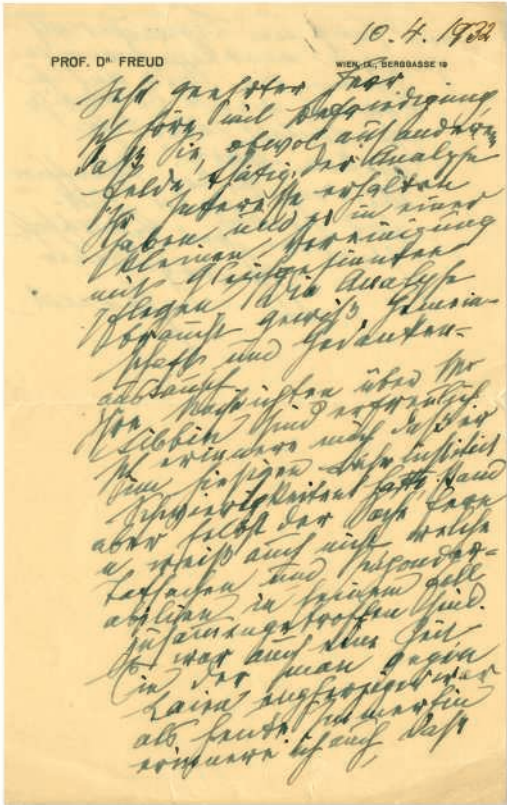 10.4.1932
PROF. DR FREUD
WIEN, IX., BERGGASSE 19
Sehr geehrter Herr
Ich höre mit Befriedigung
daß Sie, obwol auf anderem
Felde thätig, der Analyse
Ihr Interesse erhalten
haben und es in einer
kleinen Vereinigung
mit Gleichgesinnten
pflegen. Die Analyse
braucht gewiß Gemein-
schaft und Gedanken-
austausch.
Ihre Nachrichten über Mr
sind erfreulich
Ich erinnere mich daß er
im hiesigen Lehrinstitut
Schwierigkeiten hatte, stand
aber selbst der Sache fern
u weiß auch nicht welche
Tatsachen und
in seinem Fall
zusammengetroffen sind.
Es war auch eine Zeit
in der man gegen
Laien engherziger war
als heute. Immerhin
erinnere ich auch, daß